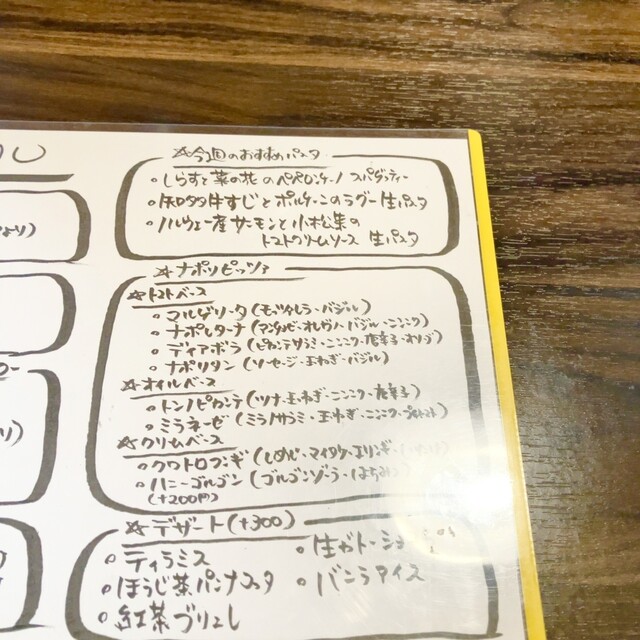 ☆今週のおすすめパスタ
・しらすと菜の花のペペロンチーノ スパゲッティー
・知多牛すじとポルチーニのラグー 生パスタ
・ノルウェー産サーモンと小松菜の
トマトクリームソース 生パスタ
☆ナポリピッツァ
☆トマトベース
・マルゲリータ(モッツァレラ・バジル)
・ナポレターナ(アンチョビ・オレガノ・バジル・ニンニク)
・ディアボラ(ピカンテサラミ・ニンニク・唐辛子・オリーブ)
・ナポリタン(ソーセージ・玉ねぎ・バジル)
☆オイルベース
・トンノピカンテ(ツナ・玉ねぎ・ニンニク・唐辛子)
・ミラネーゼ(ミラノサラミ・玉ねぎ・ニンニク・
☆クリームベース
・クワトロフンギ(しめじ・マイタケ・エリンギ・
・ハニーゴルゴン(ゴルゴンゾーラ・はちみつ)
(+200円)
☆デザート(+300)
・ティラミス
・生ガトーショコラ
・ほうじ茶パンナコッタ
・バニラアイス
・紅茶ブリュレ